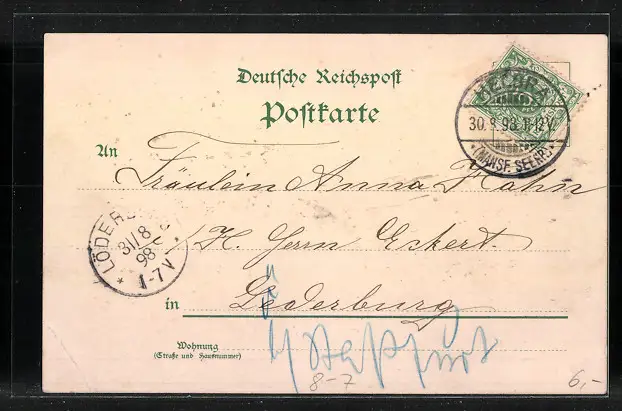 Deutsche Reichspost
Postkarte
HEDERSL
30.8.98.11-12V.
* (MANSF. SEEKR.) *
An
Fräulein Anna Hahn
LÖDERB
31/8
98
* 1-7V
i/H. Herrn Eckert.
in
Lederburg
Wohnung
(Straße und Hausnummer)
b/ Staßfurt
8-7
6,-